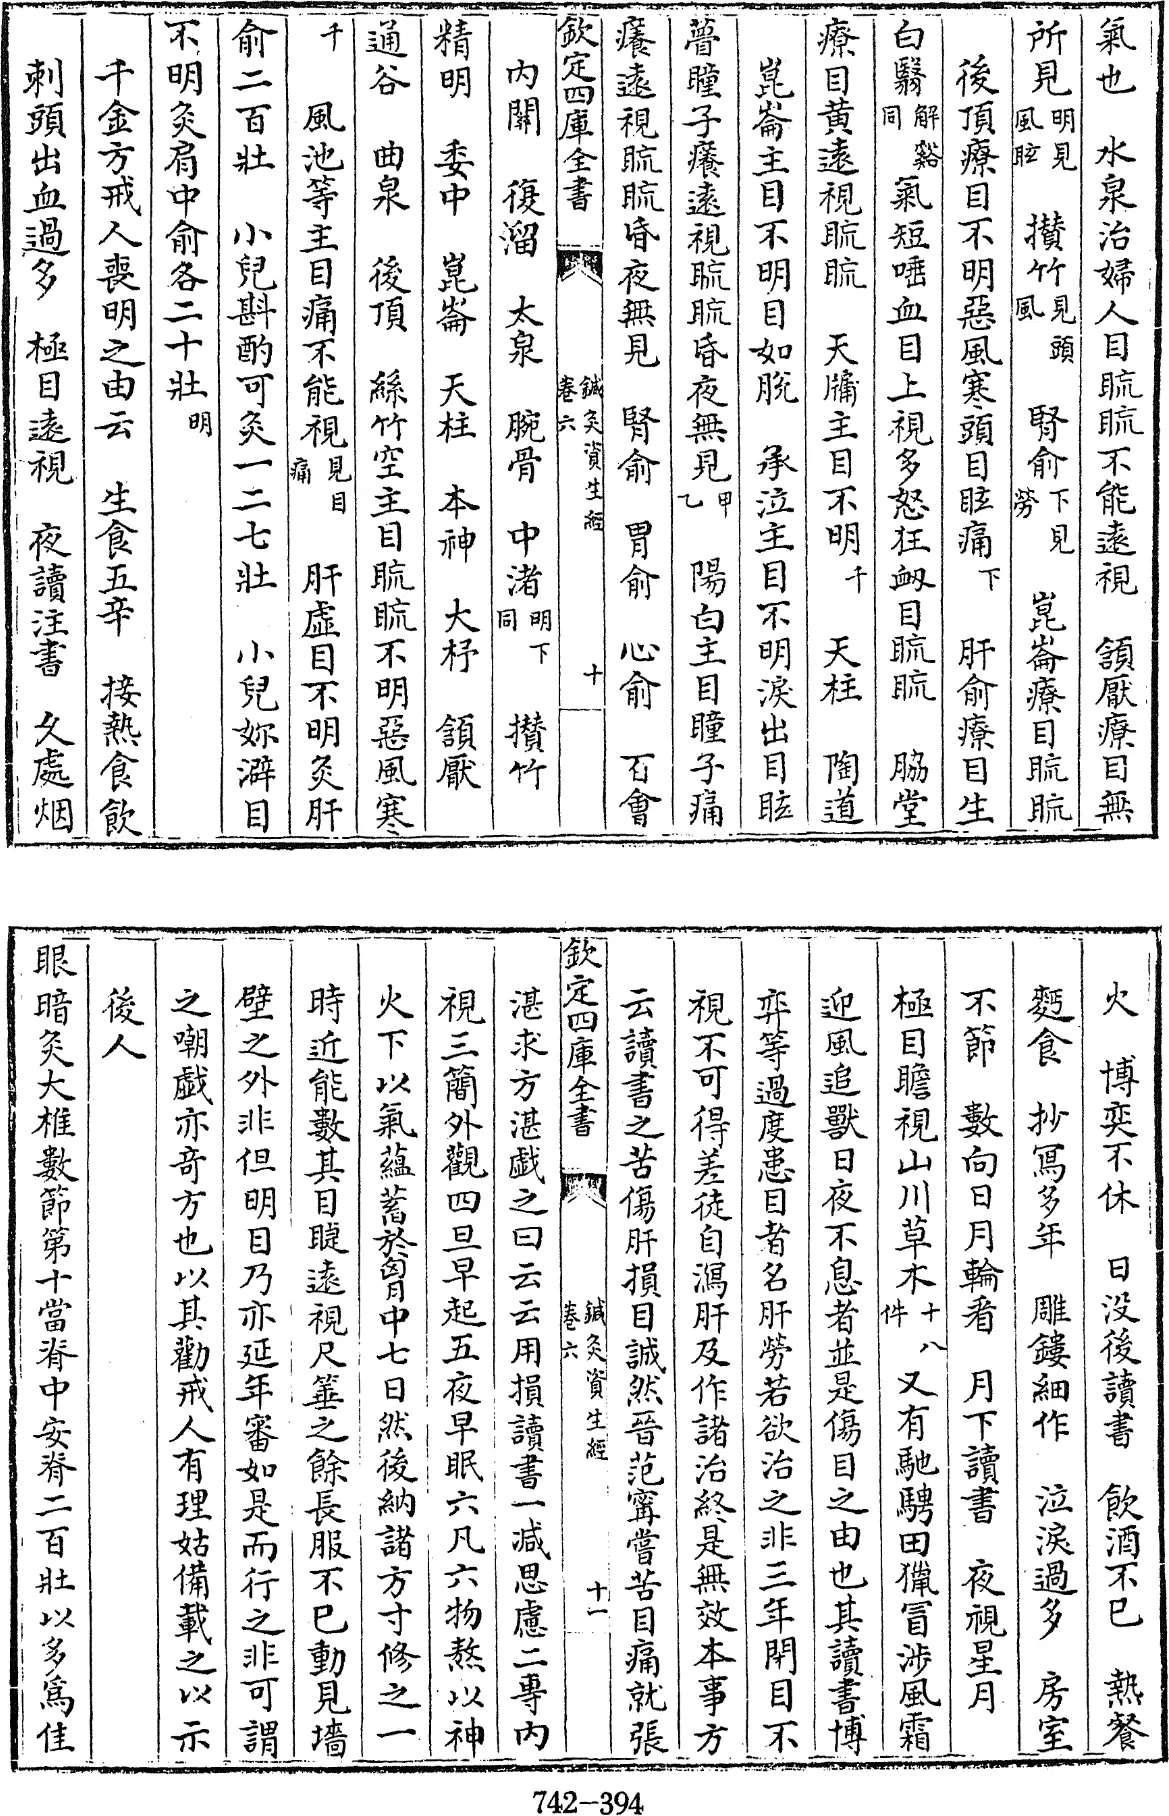 氣也　水泉治婦人目䀮䀮不能遠視　頷厭療目無
所見明見風眩　攅竹見頭風　腎俞下見勞　崑崙療目䀮䀮
後頂療目不明惡風寒頭目眩痛下　肝俞療目生
白翳解谿同　氣短唾血目上視多怒狂衂目䀮䀮　脇堂
療目黄遠視䀮䀮　天牖主目不明千　天柱　陶道
崑崙主目不明目如脫　承泣主目不明淚出目眩
瞢瞳子癢遠視䀮䀮昏夜無見甲乙　陽白主目瞳子痛
癢遠視䀮䀮昏夜無見　腎俞　胃俞　心俞　百會
欽定四庫全書　鍼灸資生經卷六　十
內關　復溜　太泉　腕骨　中渚明下同　攅竹
精明　委中　崑崙　天柱　本神　大杼　頷厭
通谷　曲泉　後頂　絲竹空主目䀮䀮不明惡風寒
千　風池等主目痛不能視見目痛　肝虛目不明灸肝
俞二百壯　小兒斟酌可灸一二七壯　小兒妳澼目
不明灸肩中俞各二十壯明
千金方戒人喪明之由云　生食五辛　接熱食飲
刺頭出血過多　極目遠視　夜讀注書　久處烟
火　博奕不休　日没後讀書　飲酒不已　熱餐
麫食　抄寫多年　雕鏤細作　泣淚過多　房室
不節　數向日月輪看　月下讀書　夜視星月
極目瞻視山川草木十八件　又有馳騁田獵冒涉風霜
迎風追獸日夜不息者並是傷目之由也其讀書博
弈等過度患目者名肝勞若欲治之非三年閉目不
視不可得差徒自瀉肝及作諸治終是無效本事方
云讀書之苦傷肝損目誠然晉范寗嘗苦目痛就張
欽定四庫全書　鍼灸資生經卷六　十一
湛求方湛戲之曰云云用損讀書一减思慮二專内
視三簡外觀四旦早起五夜早眠六凡六物熬以神
火下以氣蘊蓄於胷中七日然後納諸方寸修之一
時近能數其目睫遠視尺箠之餘長服不已動見墻
壁之外非但明目乃亦延年審如是而行之非可謂
之嘲戲亦奇方也以其勸戒人有理姑備載之以示
後人
眼暗灸大椎數節第十當脊中安脊二百壯以多爲佳
742-394